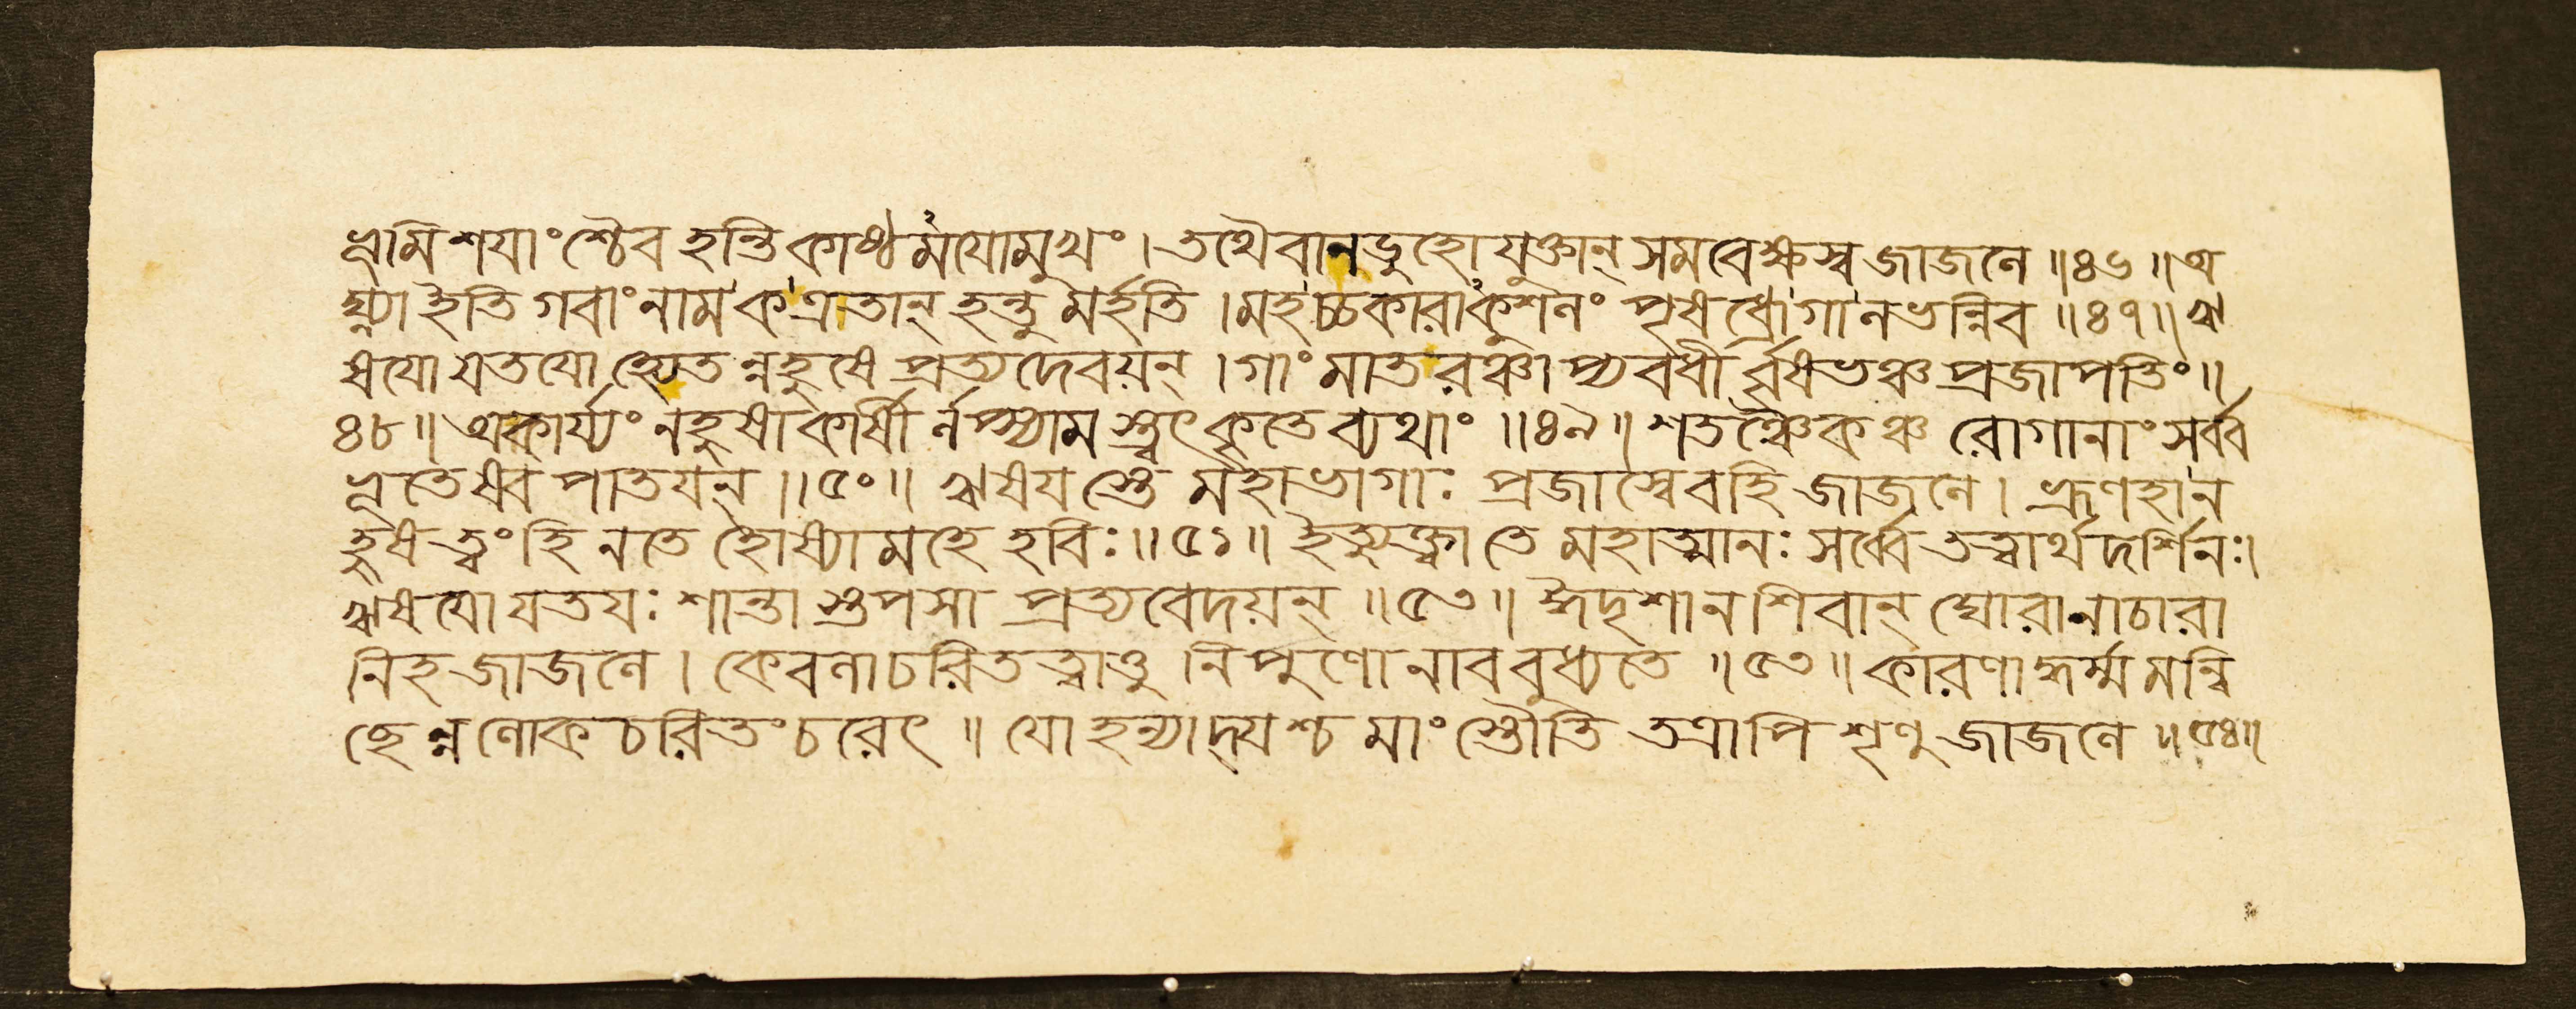 ভূমিং ভূমিশয়াংশ্চৈব হন্তি কাষ্ঠমযোমুখং । তথৈবানডুহো যুক্তান্ সমবেক্ষস্ব জাজলে ॥ ৪৬ ॥ অ
ঘ্ন্যা ইতি গবাং নাম ক এতান্ হন্তুমর্হতি । মহচ্চকারাকুশলং পৃষধ্রো গালভন্নিব ॥ ৪৭ ॥ ঋ
ষযো যতযো হ্যেতন্নহুষে প্রত্যদেবয়ন্ । গাং মাতরঞ্চাপ্যবধীর্বৃষভঞ্চ প্রজাপতিং ॥
৪৮ ॥ অকার্য্যং নহুষাকার্ষীর্লপ্স্যামস্ত্বৎকৃতে ব্যথাং ॥ ৪৯ ॥ শতঞ্চৈকঞ্চ রোগানাং সর্ব্ব
ভূতেষ্বপাতযন্ ॥ ৫০ ॥ ঋষযস্তে মহাভাগাঃ প্রজাস্বেবহি জাজলে । ভ্রূণহান
হুষত্বং হি নতে হোষ্যামহে হবিঃ ॥ ৫১ ॥ ইত্যুক্ত্বা তে মহাত্মানঃ সর্ব্বে তত্বার্থদর্শিনঃ।
ঋষযো যতযঃ শান্তাস্তপসা প্রত্যবেদয়ন্ ॥ ৫৩ ॥ ঈদৃশানশিবান্ ঘোরানাচারা
নিহ জাজলে । কেবলাচরিতত্বাত্তু নিপুণো নাববুধ্যতে ॥ ৫৩ ॥ কারণাদ্ধর্ম্মমন্বি
ছেন্নলোকচরিতং চরেৎ ॥ যো হন্যাদ্যশ্চ মাং স্তৌতি তত্রাপি শৃণু জাজলে ॥ ৫৪ ॥